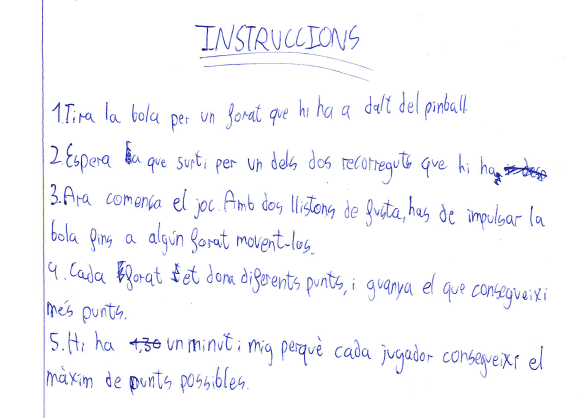 INSTRUCCIONS
1.Tira la bola per un forat que hi ha a dalt del pinball
2.Espera a que surti per un dels dos recorreguts que hi ha.
3.Ara comença el joc. Amb dos llistons de fusta, has de impulsar la
bola fins a algún forat movent-los.
4. Cada forat et dona diferents punts, i guanya el que consegueixi
més punts.
5. Hi ha 1,30 un minut i mig perquè cada jugador consegueixi el
màxim de punts possibles.